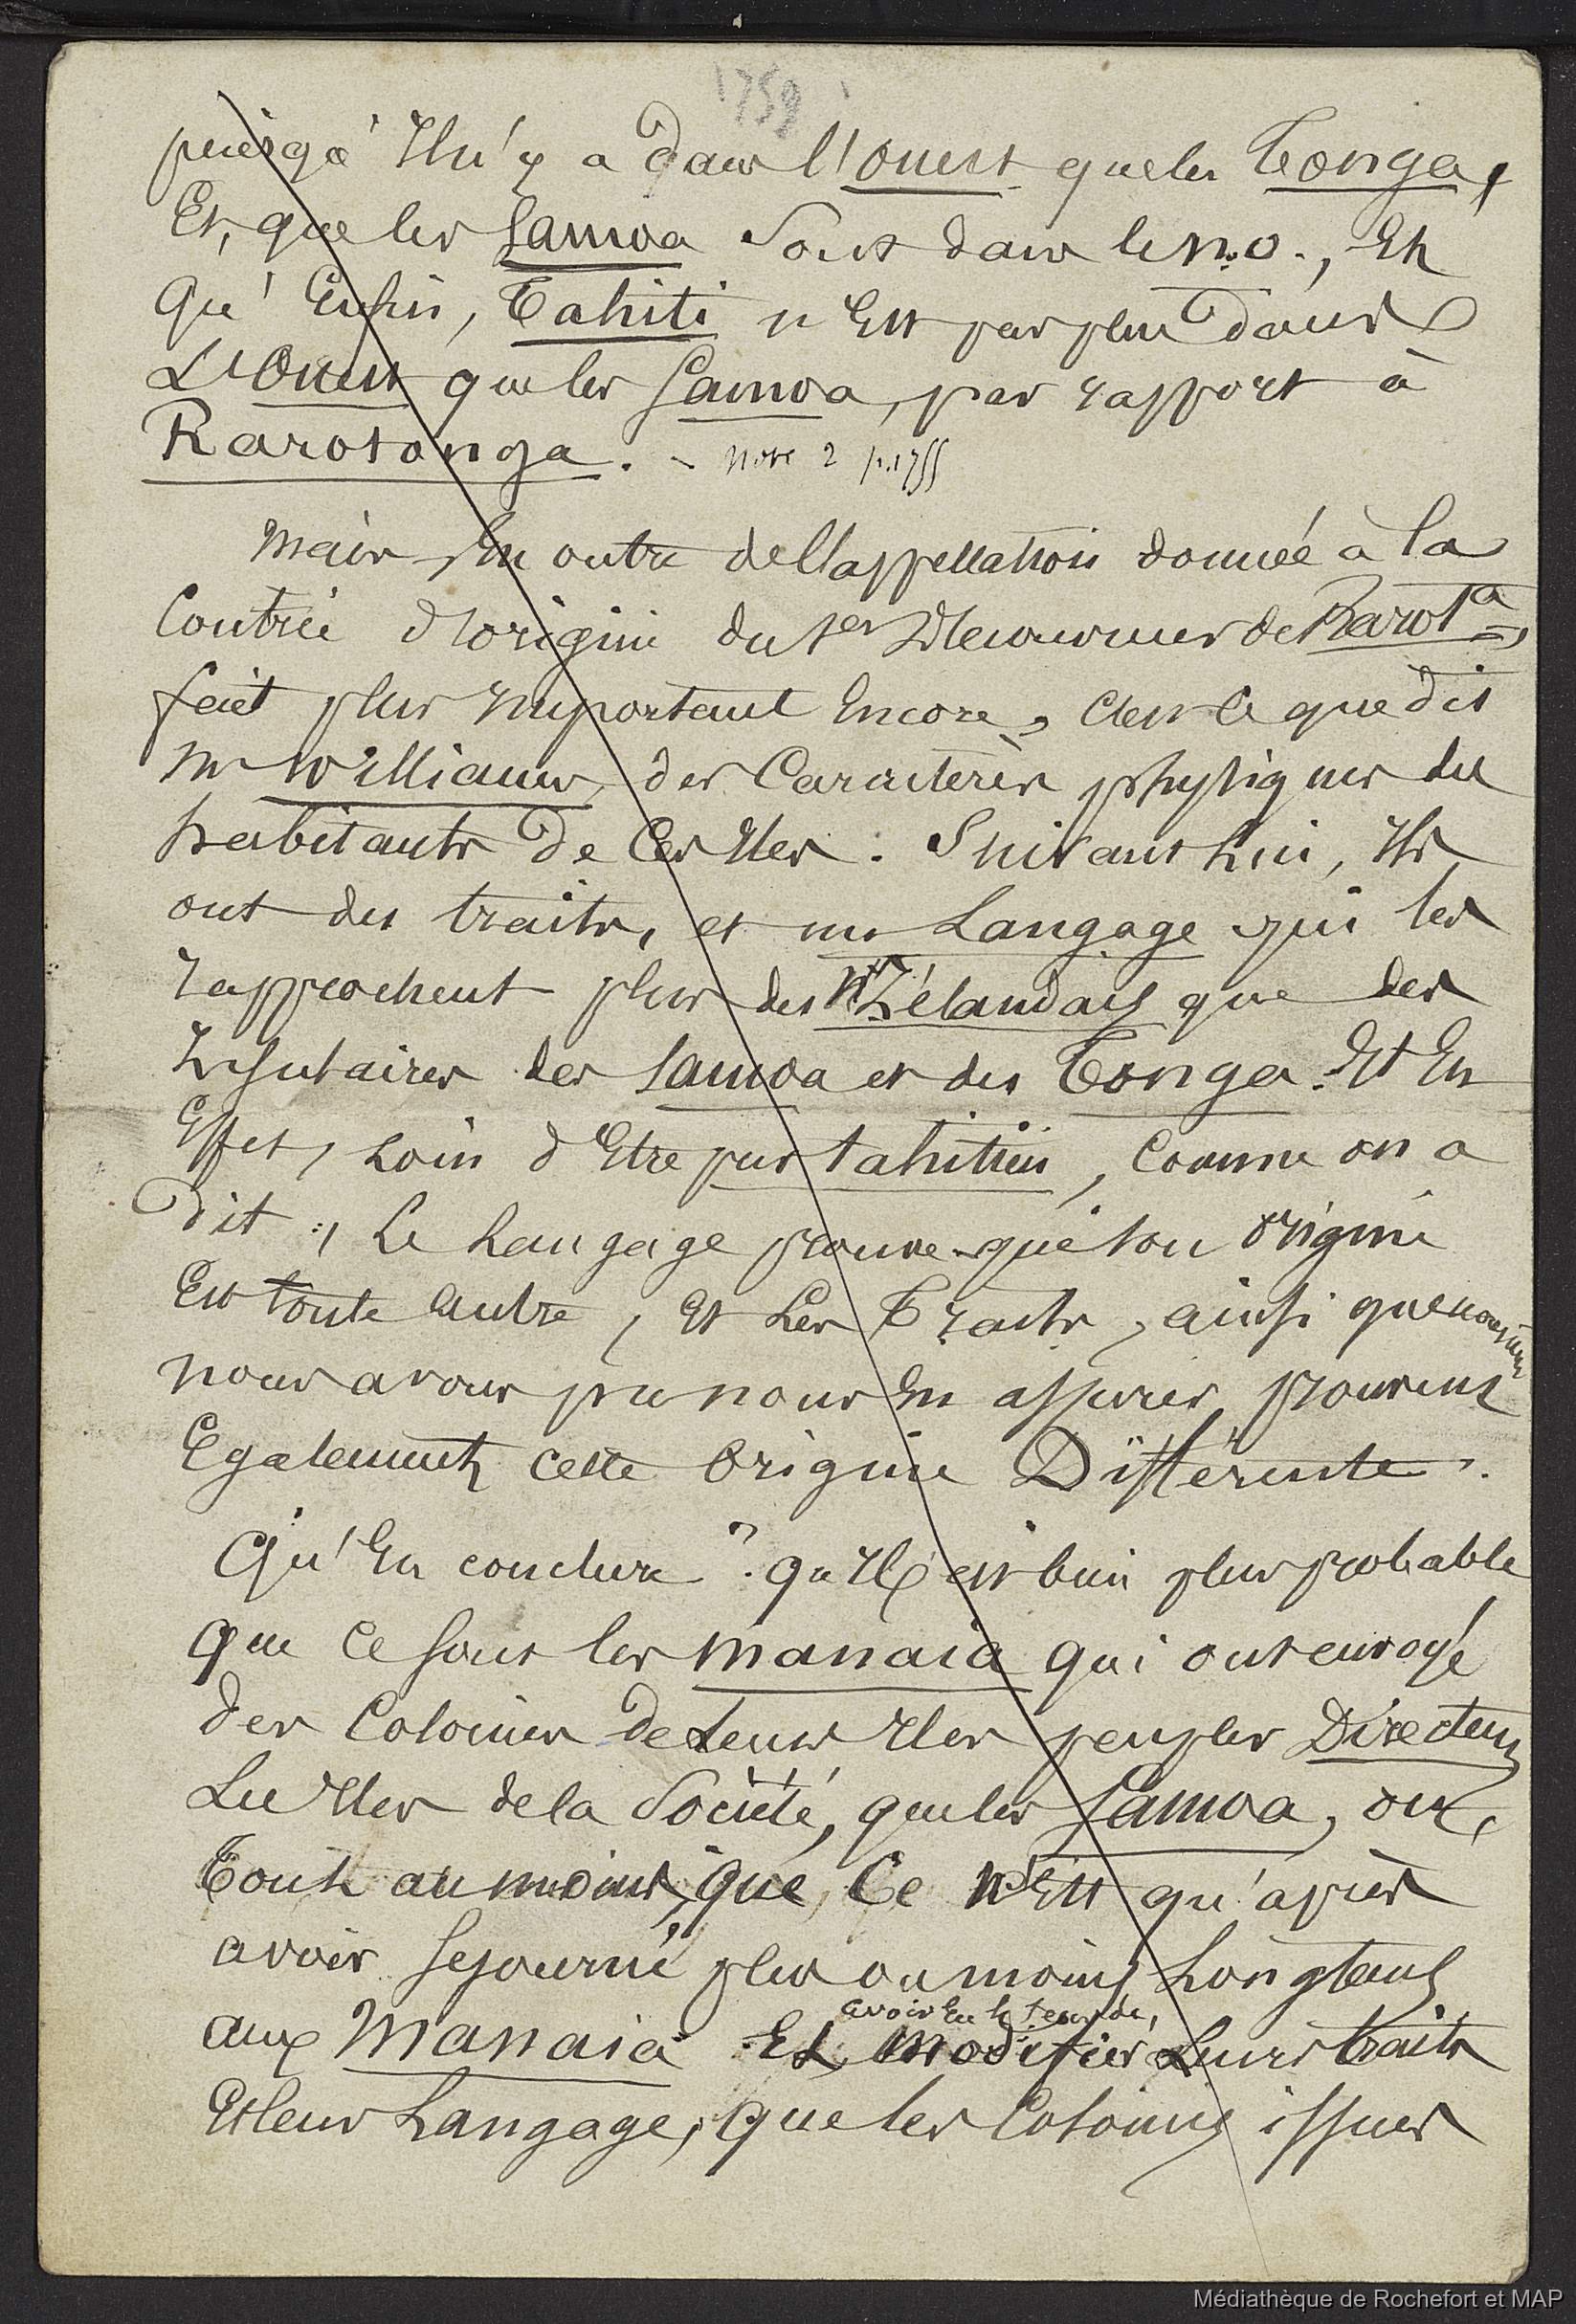 1759
puisqu'il n'y a dans l'ouest que les Tonga,
Et, que les Samoa sont dans le n.o., Et
qu'Enfin, Tahiti n'Est pas plus dans
L'Ouest que les Samoa, par rapport à
Rarotonga. - note 2 p. 1755
Mais, En outre de l'appellation donnée à la
Contrée d'origine du 1er de Rarota,
fait plus important Encore, c'est ce que dit
Mr Williams, des Caractères physiques des
habitants de Ces Iles. Suivant Lui, Ils
ont des traits, et un Langage qui les
rapprochent plus des N. Zélandais que des
Insulaires des Samoa et des Tonga. Et En
Effet, Loin d'Etre pur tahitien, Comme on a
dit, Le Langage prouve que son origine
Est toute autre, Et Les Traits, ainsi que
nous avons pu nous En assurer, prouvent
Egalement cette Origine Différente.
Qu'En conclure? qu'Il est bien plus probable
que Ce sont les Manaia qui ont envoyé
des Colonies de Leurs Iles peupler Directemt
Les Iles de la Société, que les Samoa, ou,
Tout au moins, que, Ce n'Est qu'après
avoir séjourné plus ou moins Longtemps
aux Manaia Et avoir Eu le temps de, Modifier Leurs traits
Et leur Langage, que les Colonies issues
Médiathèque de Rochefort et MAP